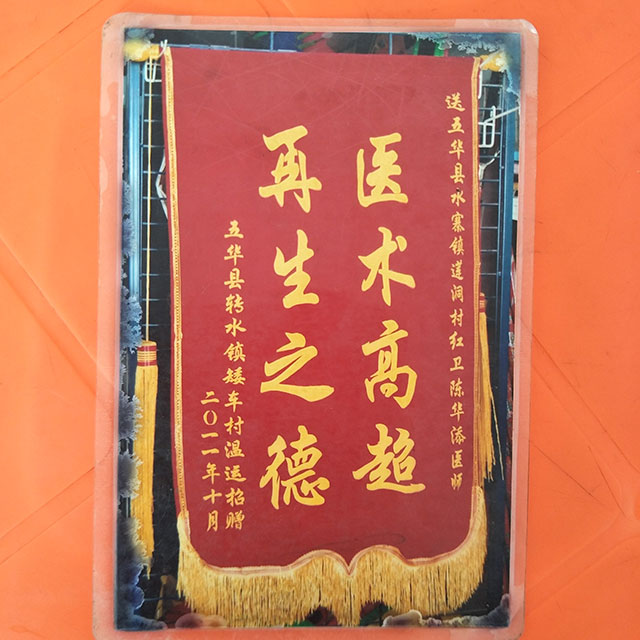 送五华县水寨镇莲洞村红卫陈华添医师
医术高超
再生之德
五华县转水镇矮车村温运招赠
二〇一一年十月